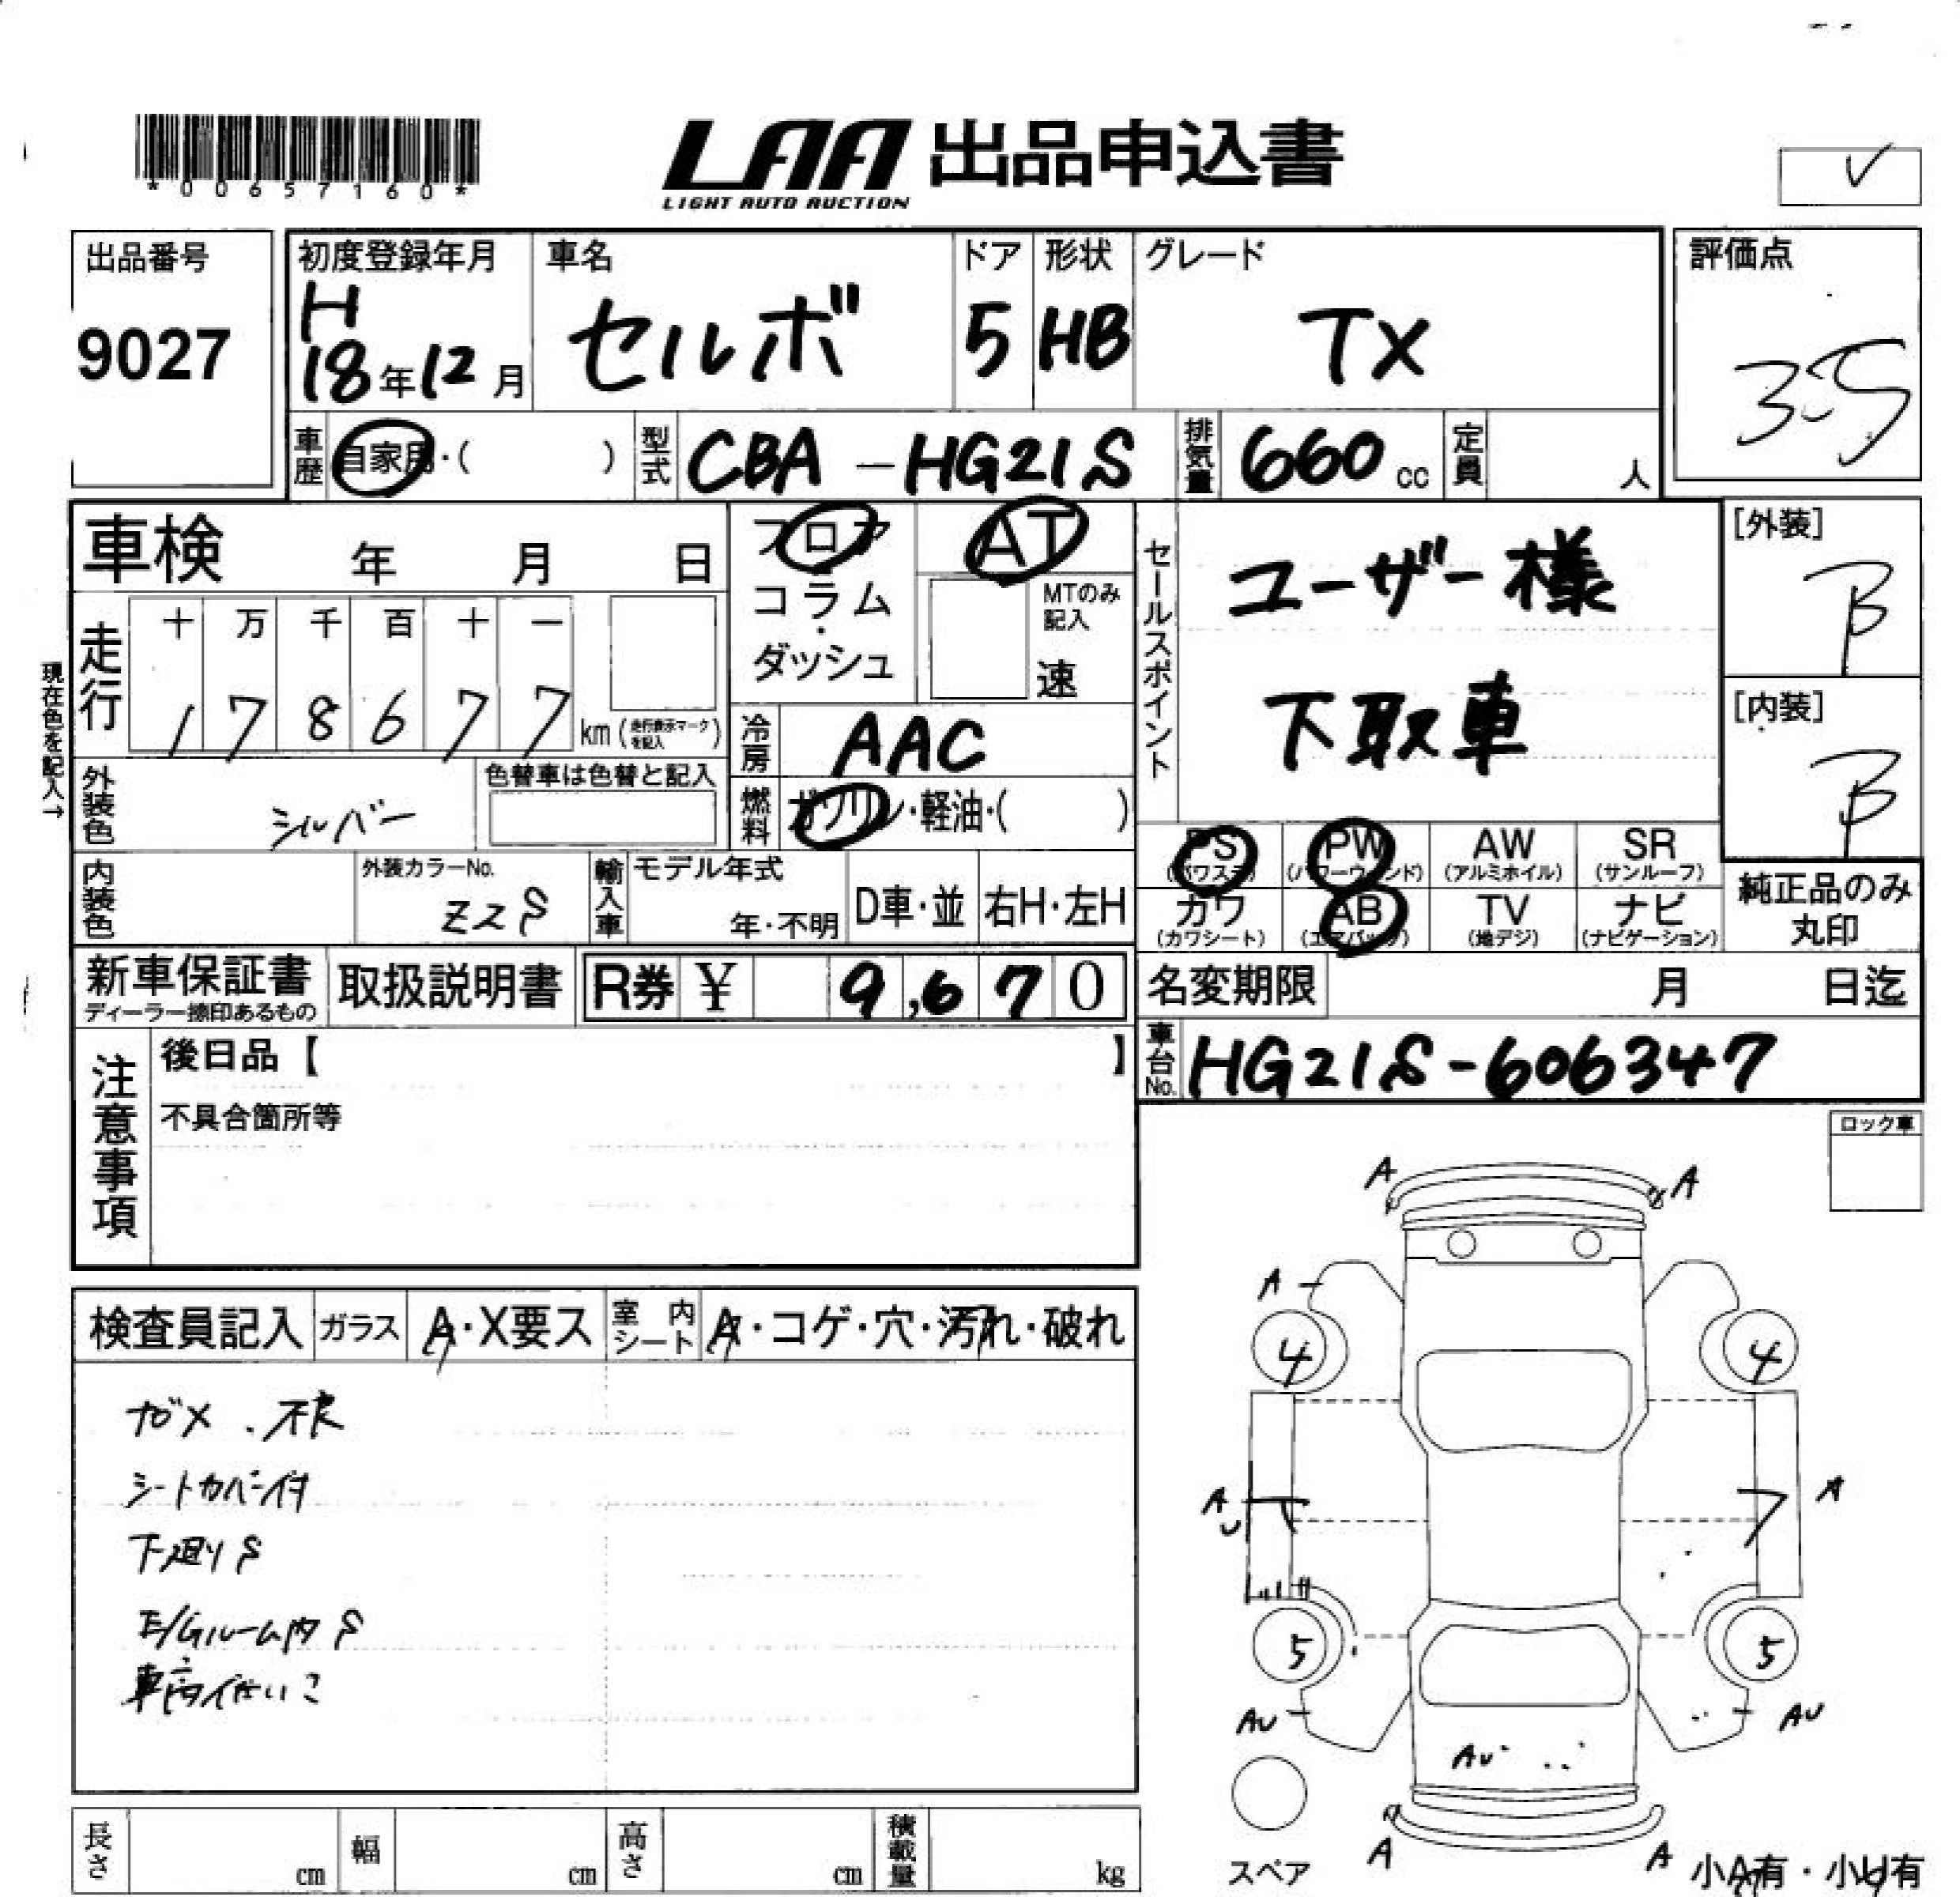 *00657160*
LAA 出品申込書
LIGHT AUTO AUCTION
出品番号
9027
初度登録年月
H
18年12月
車名
セルボ
ドア
5
形状
HB
グレード
TX
評価点
3.5
車歴
自家用・( )
型式
CBA-HG21S
排気量
660 cc
定員
人
車検 年 月 日
フロア
コラム
・
ダッシュ
AT
MTのみ記入
速
セールスポイント
ユーザー様
下取車
[外装]
B
[内装]
B
現在色を記入→
走行
十 万 千 百 十 一
1 7 8 6 7 7 km(走行表示マークを記入)
冷房
AAC
外装色
シルバー
色替車は色替と記入
燃料
ガソリン・軽油・( )
PS
(パワステ)
PW
(パワーウィンド)
AW
(アルミホイル)
SR
(サンルーフ)
内装色
外装カラーNo.
Z2S
輸入車
モデル年式
年・不明
D車・並
右H・左H
カワ
(カワシート)
AB
(エアバッグ)
TV
(地デジ)
ナビ
(ナビゲーション)
純正品のみ
丸印
新車保証書
ディーラー捺印あるもの
取扱説明書
R券 ¥ 9,670
名変期限 月 日迄
車台No.
HG21S-606347
注意事項
後日品【 】
不具合箇所等
ロック車
検査員記入
ガラス
A・X要ス
室内シート
A・コゲ・穴・汚れ・破れ
シートカバー付
下廻りS
E/Gルーム内S
A A
A
4 4
A
U
A
5 5
AU AU
AU
A A
スペア
小A有・小U有
長さ cm
幅 cm
高さ cm
積載量 kg